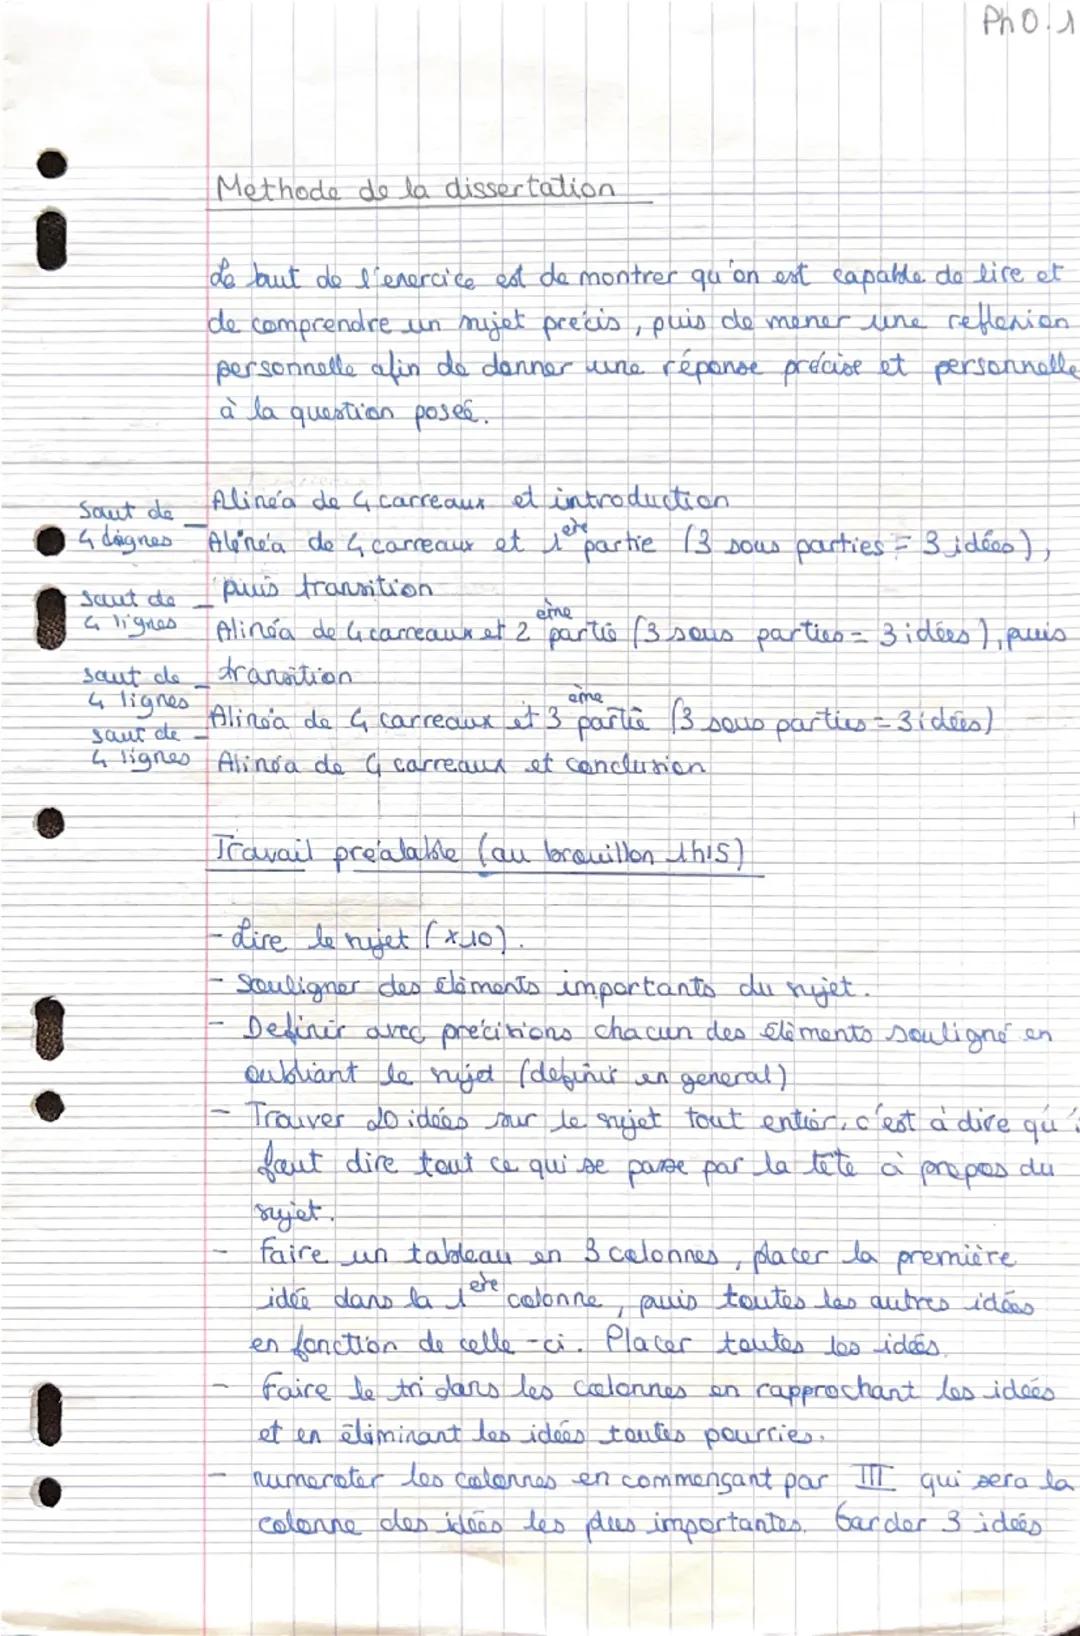 Ph0.1
Methode de la dissertation
Le but de l'exercice est de montrer qu'on est capable de lire et
de comprendre un sujet précis, puis de mener une reflexion
personnelle afin de donner une réponse précise et personnelle
à la question posée.
Alinéa de 4 carreaux et introduction
saut de
4 lignes
Alinéa de 4 carreaux et 1ere partie (3 sous parties = 3 idées),
puis transition
saut de
4 lignes
Alinéa de 4 carreaux et 2eme partie (3 sous parties = 3 idées), puis
transition
saut de
4 lignes
Alinéa de 4 carreaux et 3eme partie (3 sous parties = 3 idées)
saut de
4 lignes
Alinéa de 4 carreaux et conclusion
Travail préalable (au brouillon 1h15)
- Lire le sujet (x10).
- Souligner des éléments importants du sujet.
- Definir avec précisions chacun des éléments souligné en
oubliant le sujet (definir en general)
- Trouver 20 idées sur le sujet tout entier, c'est à dire qu'i
faut dire tout ce qui se passe par la tête à propos du
sujet.
- Faire un tableau en 3 colonnes, placer la première
idée dans la 1ere colonne, puis toutes les autres idées
en fonction de celle-ci. Placer toutes les idées.
- Faire le tri dans les colonnes en rapprochant les idées
et en éliminant les idées toutes pourries.
- numeroter les colonnes en commençant par III qui sera la
colonne des idées les plus importantes. Garder 3 idées